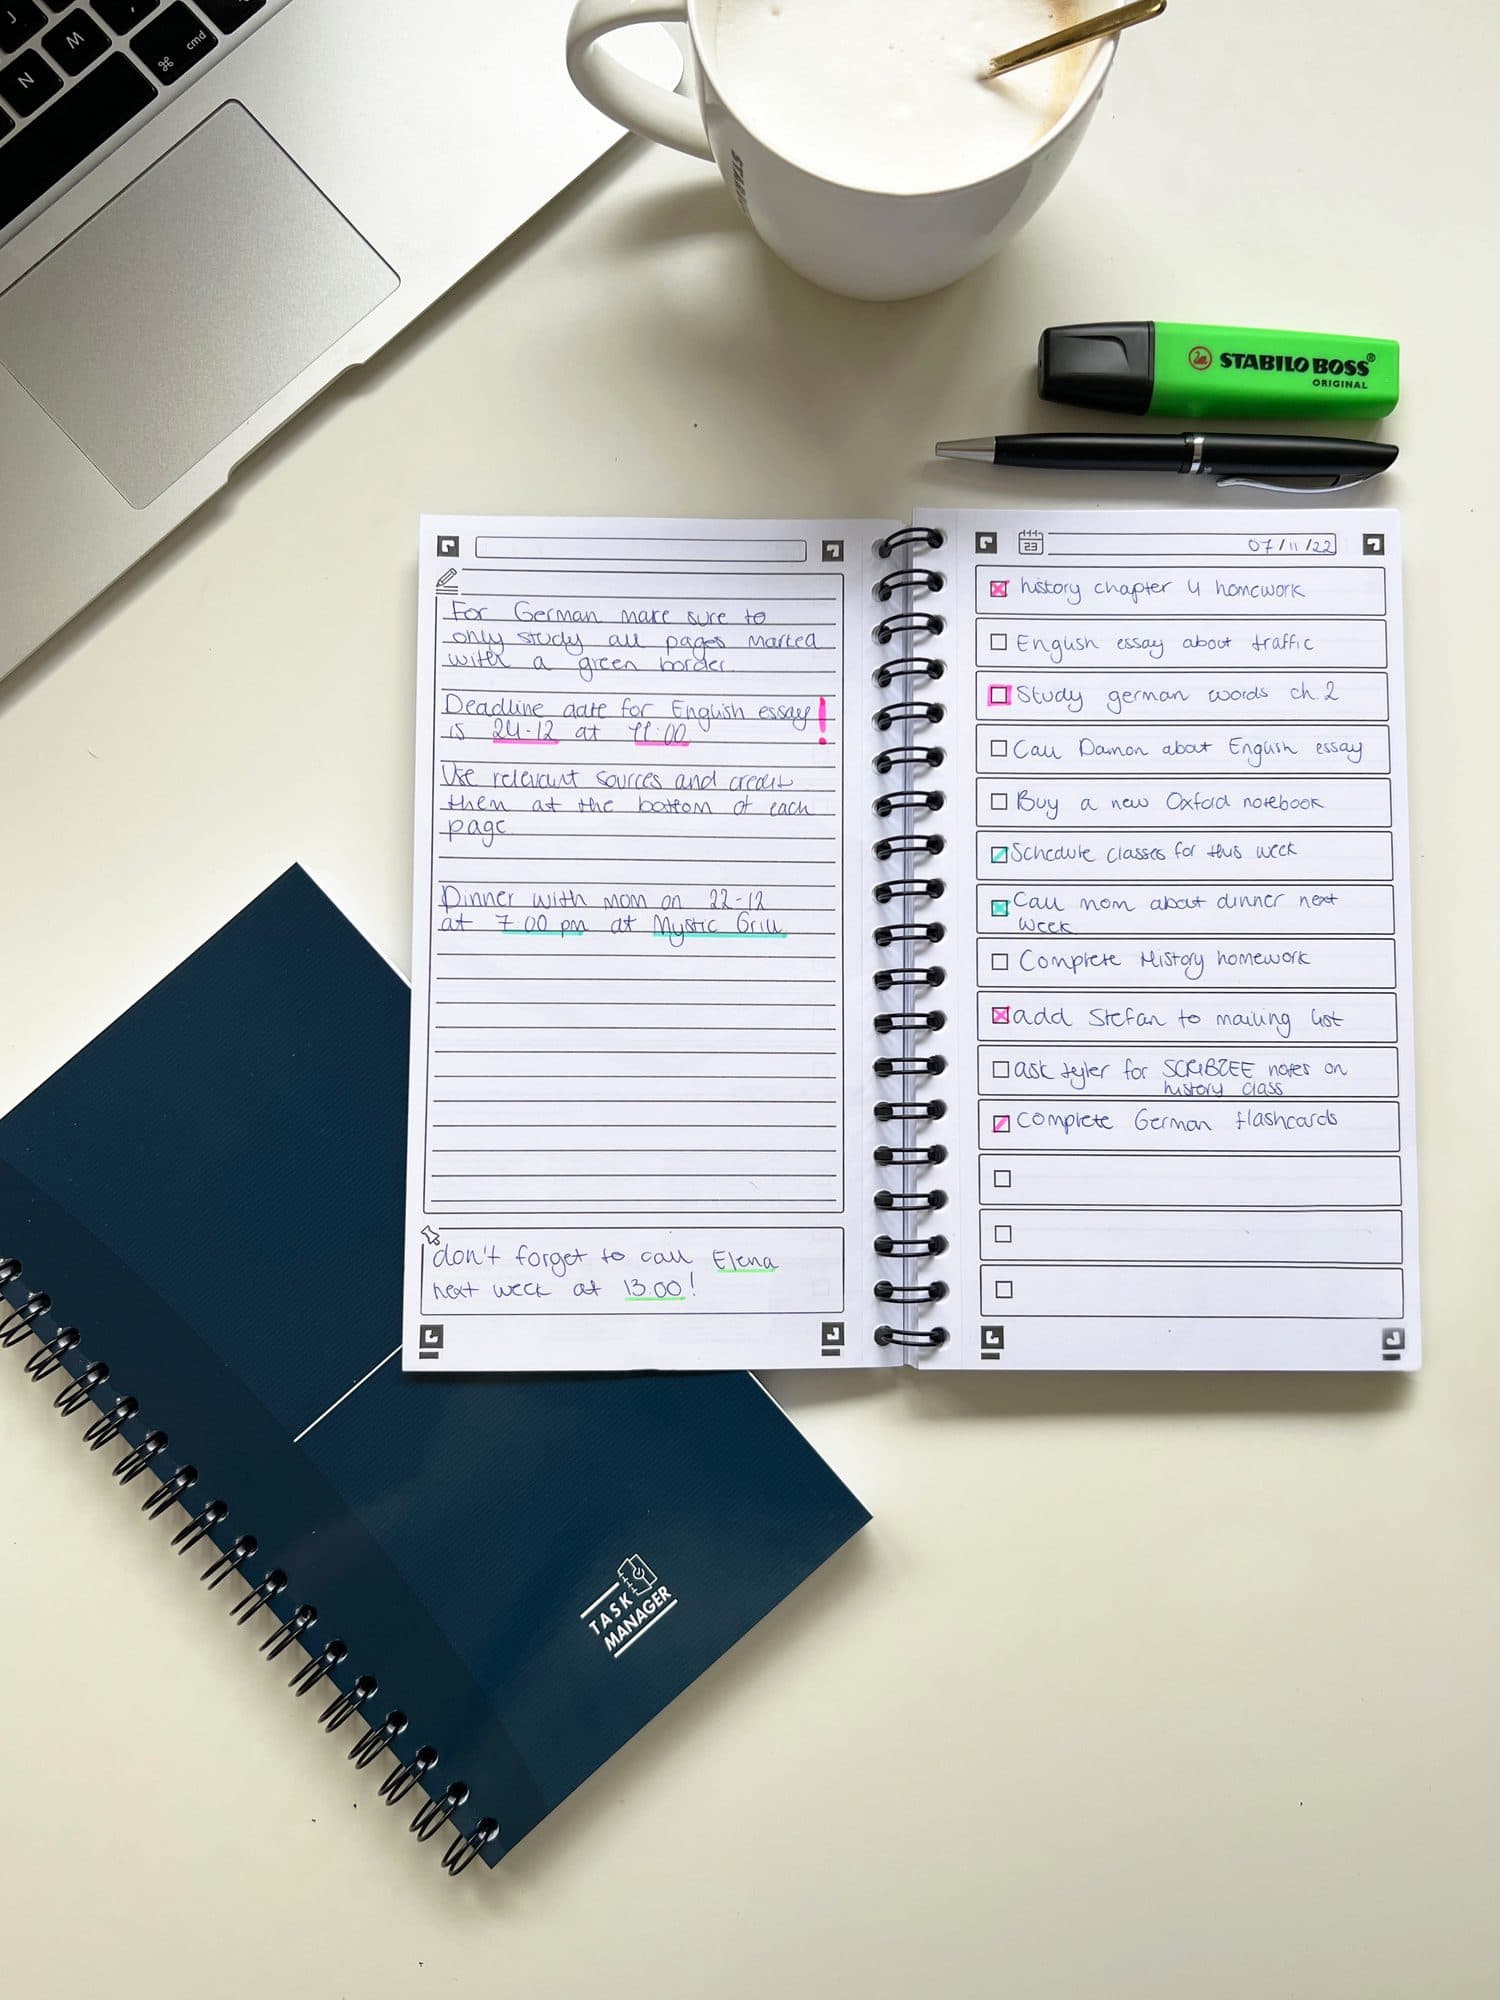 J
M
N
⌘
cmd
STAR
STABILO BOSS®
ORIGINAL
For German make sure to
only study all pages marked
with a green border.
Deadline date for English essay!
is 24-12 at 11:00
Use relevant sources and credit
them at the bottom of each
page
Dinner with mom on 22-12
at 7.00 pm at Mystic Grill
don't forget to call Elena
next week at 13.00!
23
07/11/22
history chapter 4 homework
English essay about traffic
Study german words ch. 2
Call Damon about English essay
Buy a new Oxford notebook
Schedule classes for this week
Call mom about dinner next
week
Complete History homework
add Stefan to mailing list
ask tyler for SCRIBZEE notes on
history class
Complete German flashcards
TASK
MANAGER